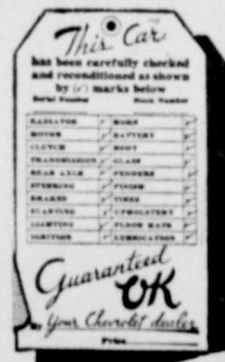 This Car
has been carefully checked
and reconditioned as shown
by (✓) marks below
Serial Number Stock Number
RADIATOR ✓ HORN ✓
MOTOR ✓ BATTERY ✓
CLUTCH ✓ BODY ✓
TRANSMISSION ✓ GLASS ✓
REAR AXLE ✓ FENDERS ✓
STEERING ✓ FINISH ✓
BRAKES ✓ TIRES ✓
STARTING ✓ UPHOLSTERY ✓
LIGHTING ✓ FLOOR MATS ✓
IGNITION ✓ LUBRICATION ✓
Guaranteed
OK
by Your Chevrolet dealer
Price